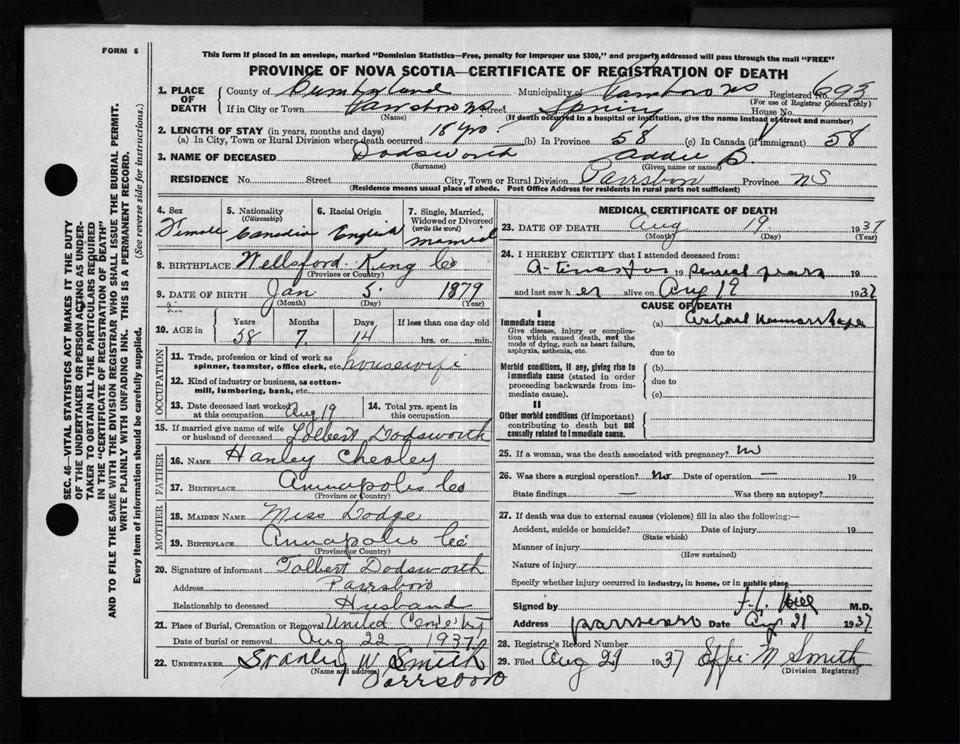 FORM 6
This form if placed in an envelope, marked "Dominion Statistics—Free, penalty for improper use $300," and properly addressed will pass through the mail "FREE"
PROVINCE OF NOVA SCOTIA—CERTIFICATE OF REGISTRATION OF DEATH
SEC. 46—VITAL STATISTICS ACT MAKES IT THE DUTY
OF THE UNDERTAKER OR PERSON ACTING AS UNDER-
TAKER TO OBTAIN ALL THE PARTICULARS REQUIRED
IN THE "CERTIFICATE OF REGISTRATION OF DEATH"
AND TO FILE THE SAME WITH THE DIVISION REGISTRAR WHO SHALL ISSUE THE BURIAL PERMIT.
WRITE PLAINLY WITH UNFADING INK. THIS IS A PERMANENT RECORD.
Every item of information should be carefully supplied. (See reverse side for instructions.)
1. PLACE OF DEATH
County of Cumberland Municipality of Parrsboro NS Registered No. 693
(For use of Registrar General only)
If in City or Town Parrsboro NS Street Spring House No.
(Name) (If death occurred in a hospital or institution, give the name instead of street and number)
2. LENGTH OF STAY (in years, months and days)
(a) In City, Town or Rural Division where death occurred 18 yrs. (b) In Province 58 (c) In Canada (if immigrant) 58
3. NAME OF DECEASED Dodsworth Addie B
(Surname) (Given name or names)
RESIDENCE No. Street City, Town or Rural Division Parrsboro Province NS
(Residence means usual place of abode. Post Office Address for residents in rural parts not sufficient)
4. Sex Female
5. Nationality (Citizenship) Canadian
6. Racial Origin English
7. Single, Married, Widowed or Divorced (write the word) married
8. BIRTHPLACE Wellsford King Co
(Province or Country)
9. DATE OF BIRTH Jan 5 1879
(Month) (Day) (Year)
10. AGE in Years 58 Months 7 Days 14 If less than one day old hrs. or min.
OCCUPATION
11. Trade, profession or kind of work as spinner, teamster, office clerk, etc. housewife
12. Kind of industry or business, as cotton-mill, lumbering, bank, etc.
13. Date deceased last worked at this occupation Aug 19
14. Total yrs. spent in this occupation
15. If married give name of wife or husband of deceased Tolbert Dodsworth
FATHER
16. NAME Hanley Chesley
17. BIRTHPLACE Annapolis Co
(Province or Country)
MOTHER
18. MAIDEN NAME Miss Dodge
19. BIRTHPLACE Annapolis Co
(Province or Country)
20. Signature of informant Tolbert Dodsworth
Address Parrsboro
Relationship to deceased Husband
21. Place of Burial, Cremation or Removal United Cemetery
Date of burial or removal Aug 22 1937
22. UNDERTAKER Stanley W Smith
(Name and address) Parrsboro
MEDICAL CERTIFICATE OF DEATH
23. DATE OF DEATH Aug 19 1937
(Month) (Day) (Year)
24. I HEREBY CERTIFY that I attended deceased from:
at times for 19 several years 19
and last saw her alive on Aug 19 1937
CAUSE OF DEATH
I
Immediate cause (a) Cerebral Hemorrhage
Give disease, injury or complication which caused death, not the mode of dying, such as heart failure, asphyxia, asthenia, etc. due to
Morbid conditions, if any, giving rise to immediate cause (stated in order proceeding backwards from immediate cause). (b) due to (c)
II
Other morbid conditions (if important) contributing to death but not causally related to immediate cause.
25. If a woman, was the death associated with pregnancy? no
26. Was there a surgical operation? no Date of operation —
State findings — Was there an autopsy?
27. If death was due to external causes (violence) fill in also the following:—
Accident, suicide or homicide? Date of injury 19
(State which)
Manner of injury
(How sustained)
Nature of injury
Specify whether injury occurred in industry, in home, or in public place
Signed by F. L. Hill M.D.
Address parrsboro Date Aug 21 1937
28. Registrar's Record Number
29. Filed Aug 21 1937 Effie M Smith
(Division Registrar)